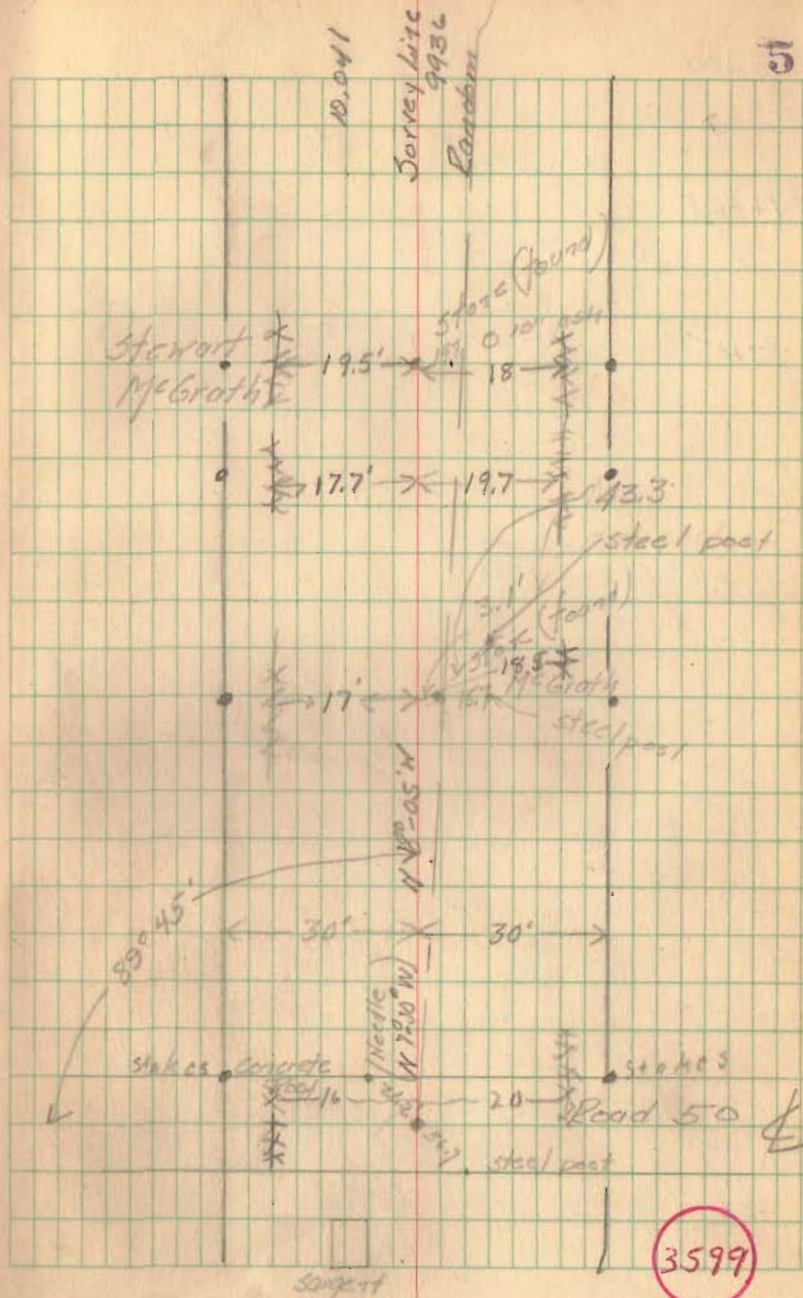 15
10,041
Survey Line
9936
Random
Stone (found)
Stewart
McGrath
19.5'
0 10" ash
18
17.7'
19.7
43.3
steel post
3.1'
Stone (found)
18.5
17'
McGrath
steel post
N 8°-05'W
89° 45'
30'
30'
(Needle
N 7°-30'W)
stakes
Concrete
post
stakes
16
20
Road 50
steel post
3599
Sargent